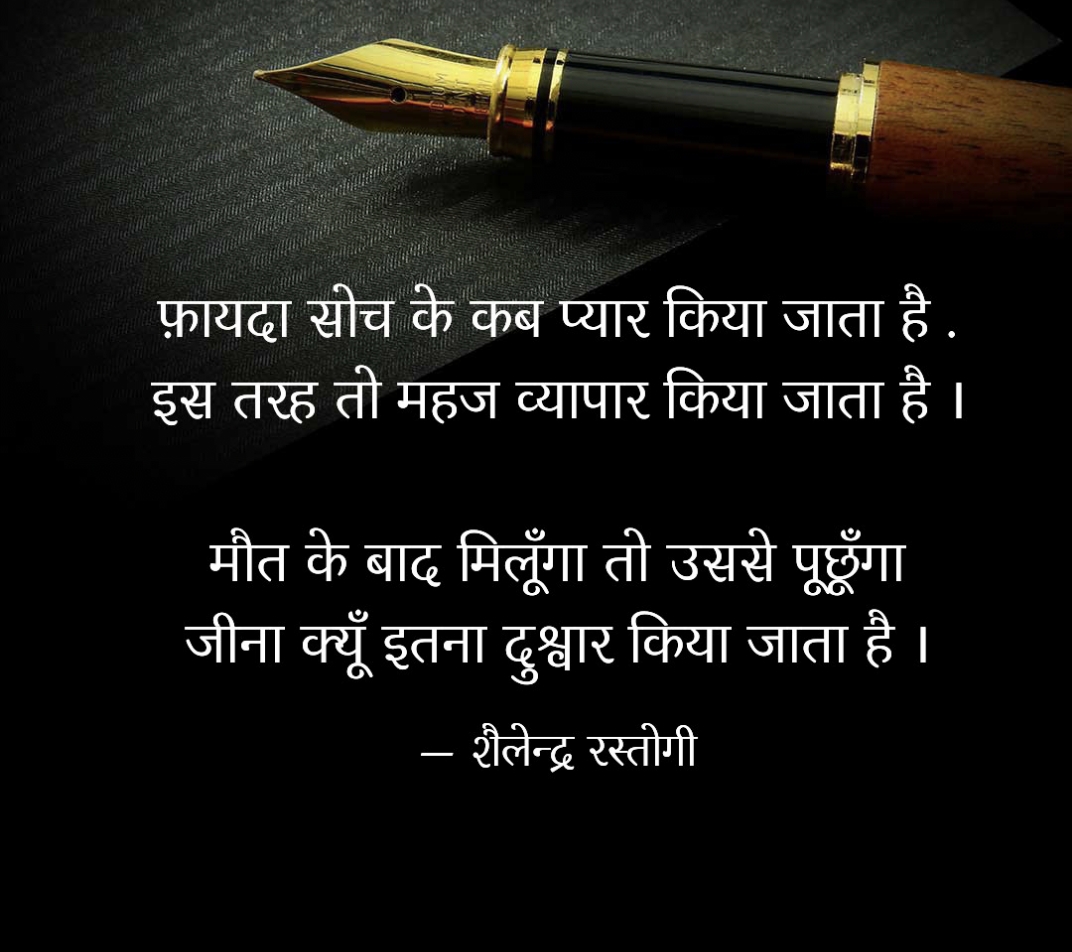 फ़ायदा सोच के कब प्यार किया जाता है .
इस तरह तो महज व्यापार किया जाता है ।
मौत के बाद मिलूँगा तो उससे पूछूँगा
जीना क्यूँ इतना दुश्वार किया जाता है ।
— शैलेन्द्र रस्तोगी